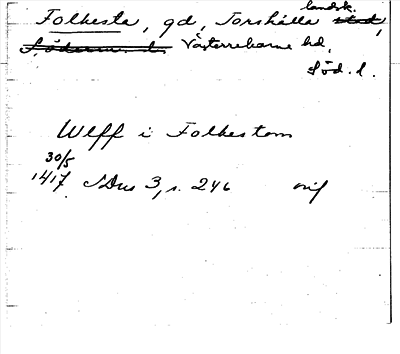 Folkesta, gd, Torshälla landsk.,
Västerrekarne hd,
Söd. l.
Ulff i Folkestom
30/5
1417 SDns 3, s. 246 orig